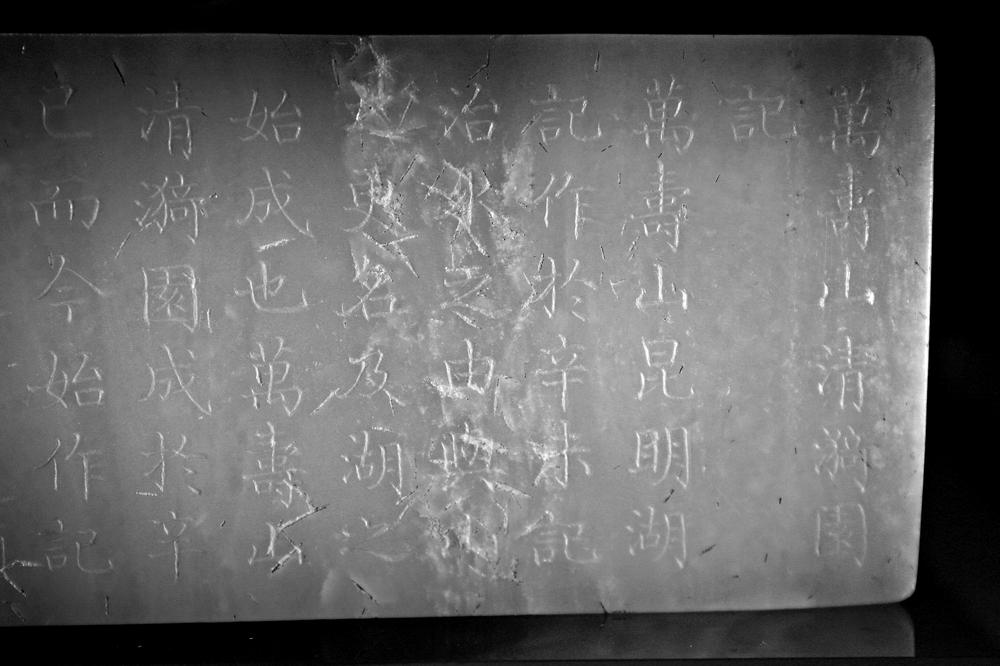 萬壽山清漪園
記
萬壽山昆明湖
記作於辛未記
治水之由與山
之更名及湖之
始成也萬壽山
清漪園成於辛
巳而今始作記